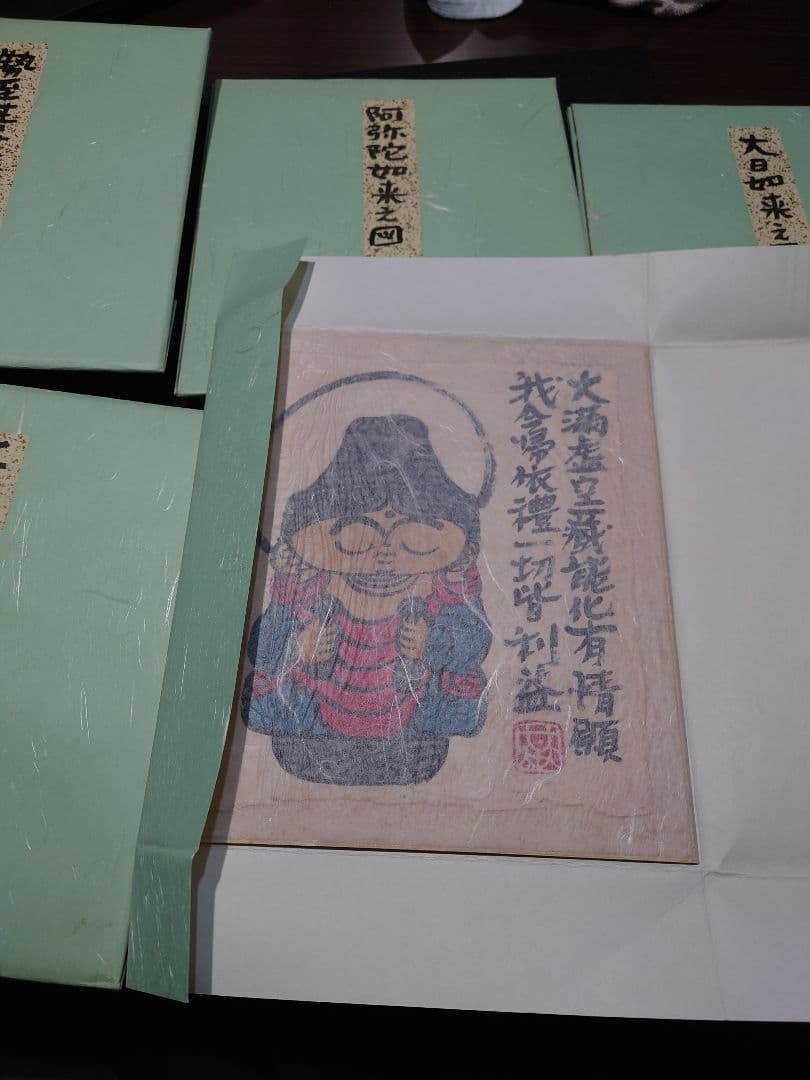 勢至
阿弥陀如来之図
大日如来之
大満虚空藏能化有情願
我今帰依禮一切皆利益